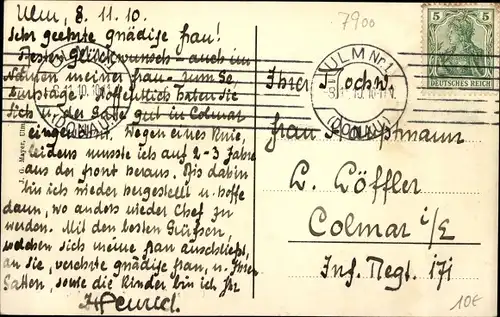 Ulm, 8. 11. 10.
Sehr geehrte gnädige Frau!
Besten Glückwunsch – auch im
Namen meiner Frau – zum Ge
burtstage! Hoffentlich haben Sie
Sich u. der Gatte gut in Colmar
eingewöhnt. Wegen eines Knie,
leidens musste ich auf 2–3 Jahre
aus der Front heraus. Bis dahin
bin ich wieder hergestellt u. hoffe
dann, wo anders wieder Chef zu
werden. Mit den besten Grüssen,
welchen sich meine Frau anschliesst,
an Sie, verehrte gnädige Frau, u. Ihren
Gatten, sowie die Kinder bin ich Ihr
J. G. Mayer, Ulm
7900
ULM No 1
(DONAU)
5 5
DEUTSCHES REICH
Ihrer Hochw.
Frau Hauptmann
L. Löffler
Colmar i/E
Inf. Regt. 171
10€